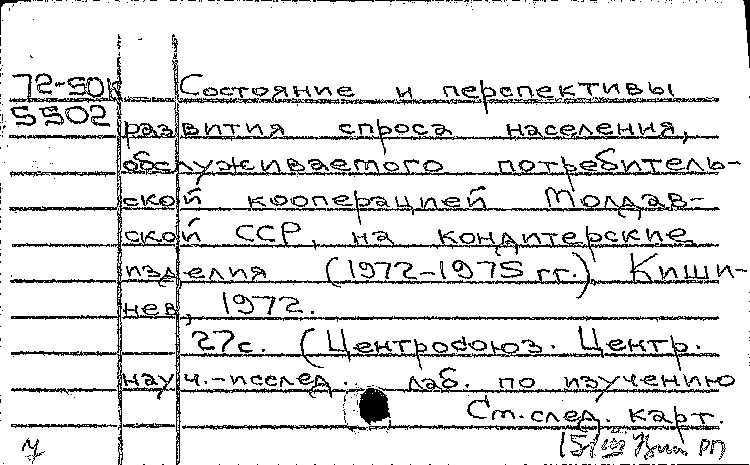 72-50к Состояние и перспективы
5502 развития спроса населения,
обслуживаемого потребитель-
ской кооперацией Молдав-
ской ССР, на кондитерские
изделия (1972-1975 гг.). Киши-
нев, 1972.
27с. (Центросоюз. Центр.
науч.-исслед. лаб. по изучению
См. след. карт.